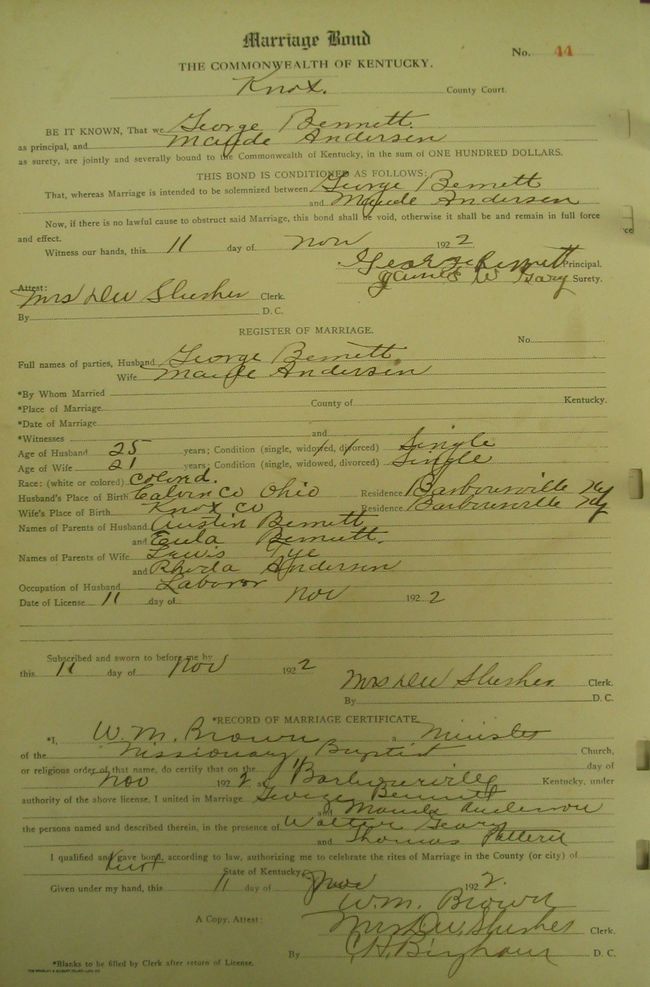 Marriage Bond
No. 44
THE COMMONWEALTH OF KENTUCKY.
Knox. County Court.
BE IT KNOWN, That we George Bennett.
as principal, and Maude Anderson
as surety, are jointly and severally bound to the Commonwealth of Kentucky, in the sum of ONE HUNDRED DOLLARS.
THIS BOND IS CONDITIONED AS FOLLOWS:
That, whereas Marriage is intended to be solemnized between George Bennett
and Maude Anderson
Now, if there is no lawful cause to obstruct said Marriage, this bond shall be void, otherwise it shall be and remain in full force
and effect.
Witness our hands, this 11 day of Nov 1922
George Bennett Principal.
James W Surety.
Attest:
Mrs DW Slusher Clerk.
By D. C.
REGISTER OF MARRIAGE.
No.
Full names of parties, Husband George Bennett
Wife Maude Anderson
*By Whom Married
*Place of Marriage County of Kentucky.
*Date of Marriage
*Witnesses and
Age of Husband 25 years; Condition (single, widowed, divorced) Single
Age of Wife 21 years; Condition (single, widowed, divorced) Single
Race: (white or colored) Colored.
Husband's Place of Birth Co Ohio Residence Barbourville Ky
Wife's Place of Birth Knox Co Residence Barbourville Ky
Names of Parents of Husband Austin Bennett
and Eula Bennett.
Names of Parents of Wife Lewis Tye
and Rhoda Anderson
Occupation of Husband Laboror
Date of License 11 day of Nov 1922
Subscribed and sworn to before me by
this 11 day of Nov 1922
Mrs DW Slusher Clerk.
By D. C.
*RECORD OF MARRIAGE CERTIFICATE.
*I, W. M. Brown a Minister
of the Missionary Baptist Church,
or religious order of that name, do certify that on the 11 day of
Nov 1922 at Barbourville Kentucky, under
authority of the above license, I united in Marriage George Bennett
and Maude Anderson
the persons named and described therein, in the presence of Walter Geary
and Thomas
I qualified and gave bond, according to law, authorizing me to celebrate the rites of Marriage in the County (or city) of
State of Kentucky
Given under my hand, this 11 day of Nov 1922.
W. M. Brown
A Copy, Attest: Mrs DW. Slusher Clerk.
By D. C.
*Blanks to be filled by Clerk after return of License.